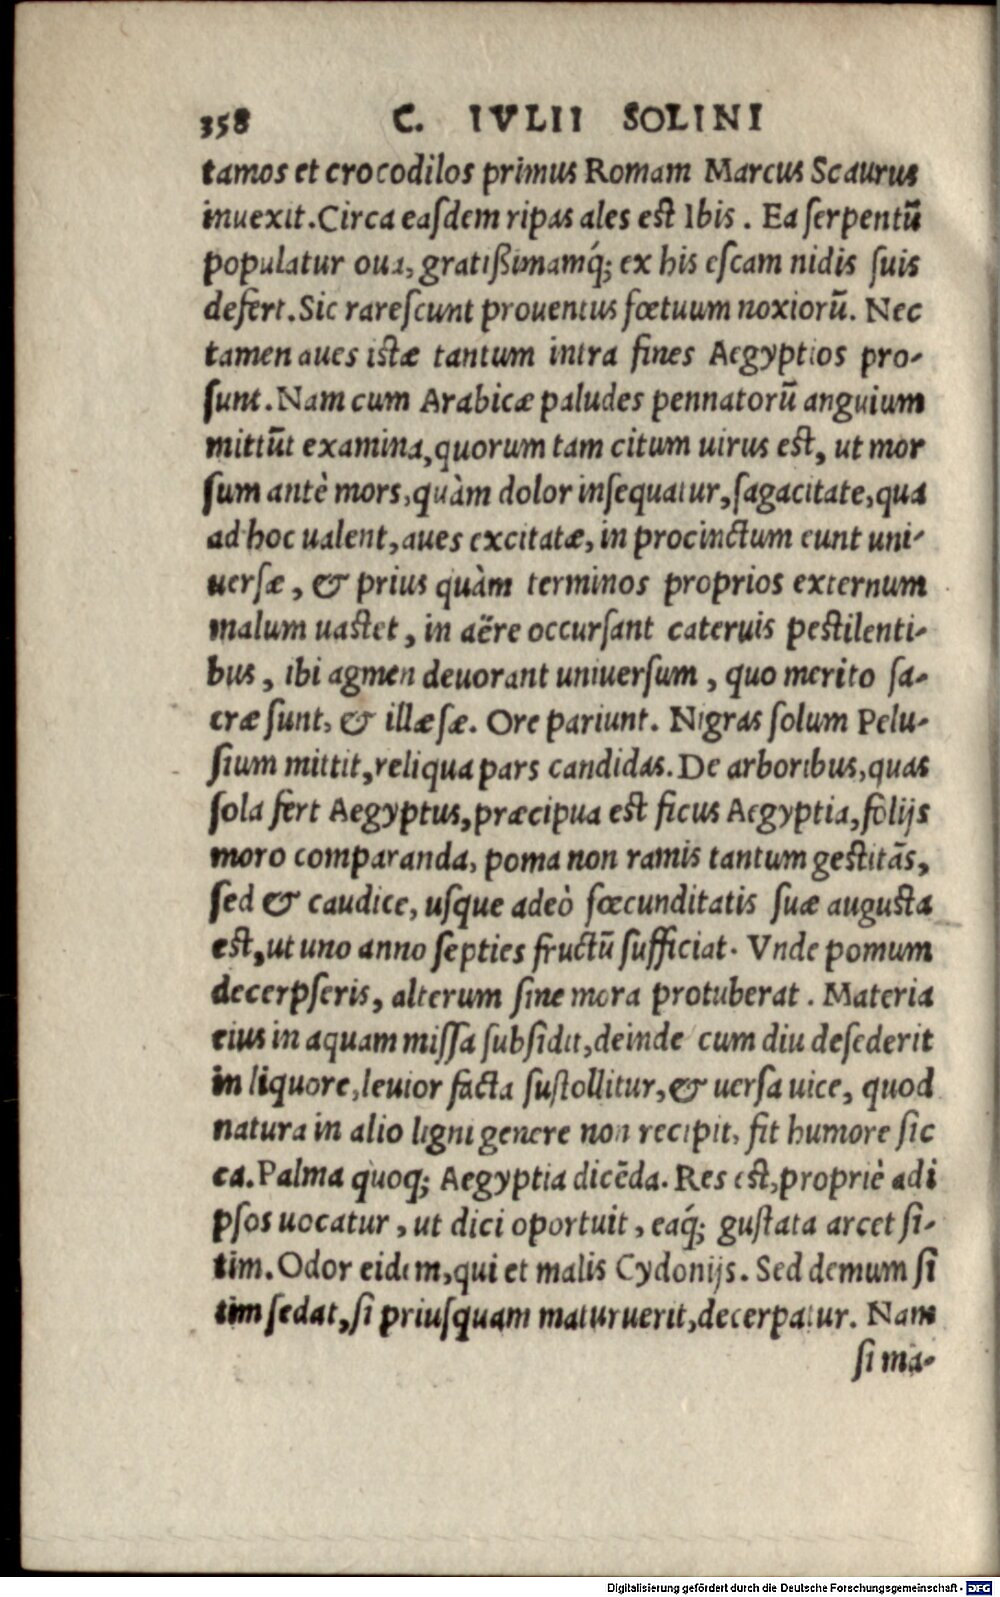 358 C. IVLII SOLINI
tamos et crocodilos primus Romam Marcus Scaurus
inuexit. Circa easdem ripas ales est Ibis. Ea serpentū
populatur oua, gratißimamq́; ex his escam nidis suis
defert. Sic rarescunt prouentus fœtuum noxiorū. Nec
tamen aues istæ tantum intra fines Aegyptios pro-
sunt. Nam cum Arabicæ paludes pennatorū anguium
mittūt examina, quorum tam citum uirus est, ut mor
sum antè mors, quàm dolor insequatur, sagacitate, qua
ad hoc ualent, aues excitatæ, in procinctum eunt uni-
uersæ, & prius quàm terminos proprios externum
malum uastet, in aëre occursant cateruis pestilenti-
bus, ibi agmen deuorant uniuersum, quo merito sa-
cræ sunt, & illæsæ. Ore pariunt. Nigras solum Pelu-
sium mittit, reliqua pars candidas. De arboribus, quas
sola fert Aegyptus, præcipua est ficus Aegyptia, folijs
moro comparanda, poma non ramis tantum gestitās,
sed & caudice, usque adeò fœcunditatis suæ augusta
est, ut uno anno septies fructū sufficiat. Vnde pomum
decerpseris, alterum sine mora protuberat. Materia
eius in aquam missa subsidit, deinde cum diu desederit
in liquore, leuior facta sustollitur, & uersa uice, quod
natura in alio ligni genere non recipit, fit humore sic
ca. Palma quoq; Aegyptia dicēda. Res est, propriè adi
psos uocatur, ut dici oportuit, eaq́; gustata arcet si-
tim. Odor eidem, qui et malis Cydonijs. Sed demum si
tim sedat, si priusquam maturuerit, decerpatur. Nam
si ma-
Digitalisierung gefördert durch die Deutsche Forschungsgemeinschaft - DFG